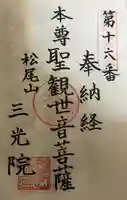 第十六番
奉納経
本尊聖観世音菩薩
松尾山
三光院